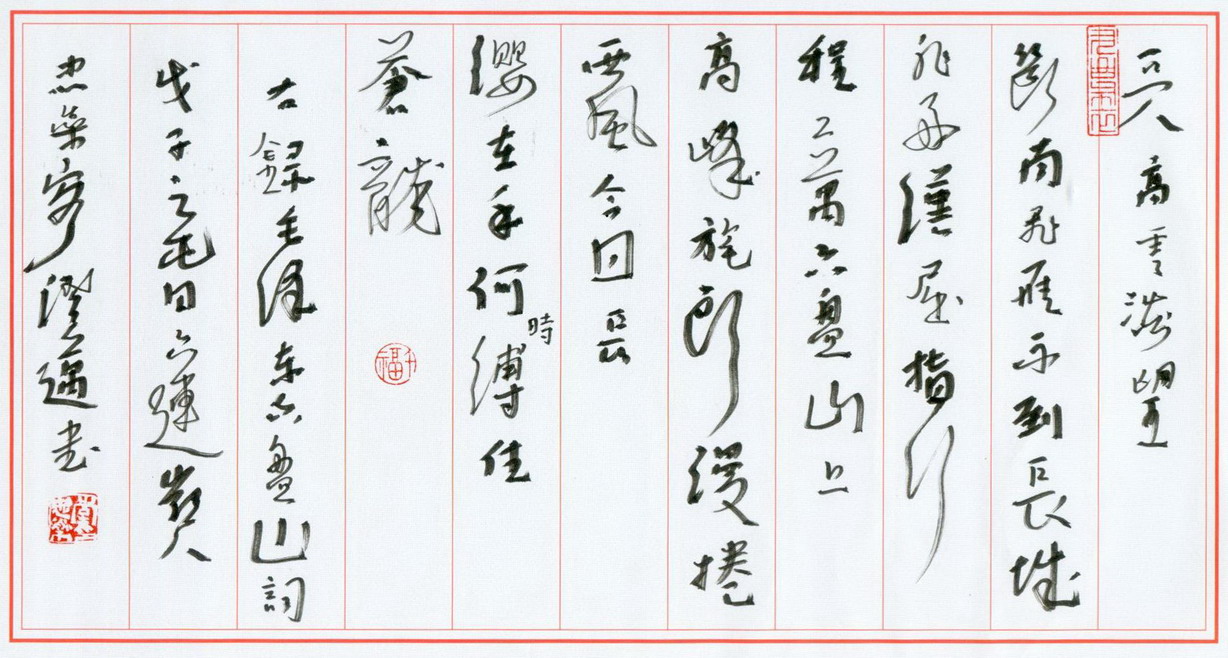 天高雲淡望
斷南飛雁不到長城
非好漢屈指行
程二萬六盤山上
高峰旄頭漫捲
西風今日長
纓在手何時縛住
蒼龍
右錄毛澤東六盤山詞
戊子之日六連嶺人
忠客澄邁書